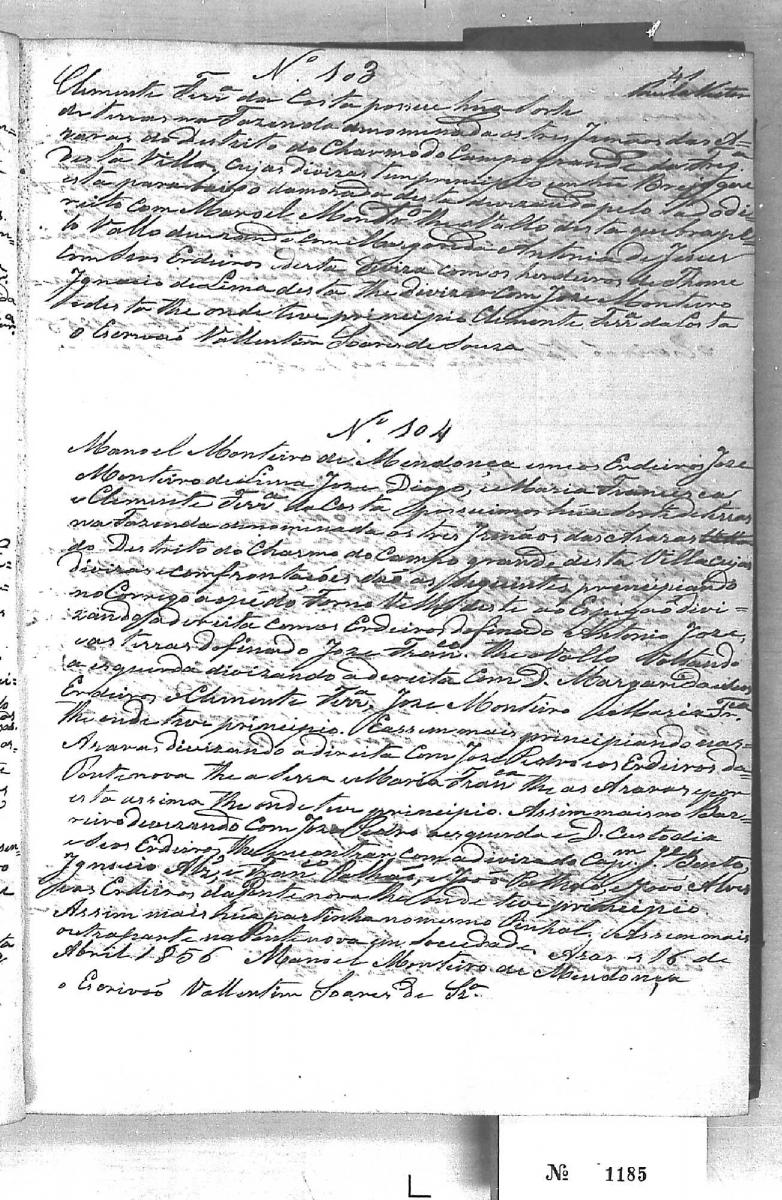 41
Nº 103
Clemente Ferrª da Costa possue hua Sorte
de terras na Fazenda denominada os tres Irmãos das A-
raras do Destrito do Charmo do Campo grande
desta Villa, cujas divizas tem principio em hu Brejo que
esta para baixo da morada desta devizando pelo lado di-
reito com Manoel Montrº the o Vallo desta quebra pelo
Vallo devizando com Margarida e Antonia de Jesus
com Seos Erdeiros desta Diviza com os herdeiros de Thome
Ignacio de Lima desta the divizar com Joze Monteiro
e desta the onde teve principio Clemente Ferrª da Costa
o Escrivaõ Vallentim Soares de Souza
Nº 104
Manoel Monteiro de Mendonça e meos Erdeiros Joze
Monteiro de Lima Joze Diogo, e Maria Francisca
e Clemente Ferrª da Costa Possuimos húa Sorte de terras
na Fazenda denominada os tres Irmãos das Araras
do Destrito do Charmo do Campo grande desta Villa cujas
divizas e comfrontações são as seguintes principiando
no Corrego ao pé do Forno Velho deste ao Espigaõ divi-
zando a direita com os Erdeiros do finado Antonio Joze,
e as terras do finado Joze Francº the o Vallo Voltando
a esquerda divizando a direita com D. Margarida e seos
Erdeiros, e Clemente Ferrª, Joze Monteiro e Maria Frca
the onde teve principio. E assim mais principiando nas
Araras divizando a direita com Joze Pedro e os Erdeiros da
Ponte nova the a Serra e Maria Franca the as Araras e por
esta assima the onde teve principio. Assim mais no Bar-
reiro devizando com Joze Pedro a esquerda e D. Custodia
e Seos Erdeiros the encontrar com a diviza do Capm Je Bento,
Ignacio Alz, e Franco Palhaõ, e Joaõ Palhaõ, e Joaõ Alves
e os Erdeiros da Ponte nova the onde teve principio.
Assim mais húa partinha no mesmo Pinhal, e Assim mais
outra parte na Ponte nova em Sociedade, Araras 16 de
Abril 1856 Manoel Monteiro de Mendonça
o Escrivaõ Vallentim Soares de Sza
Nº 1185